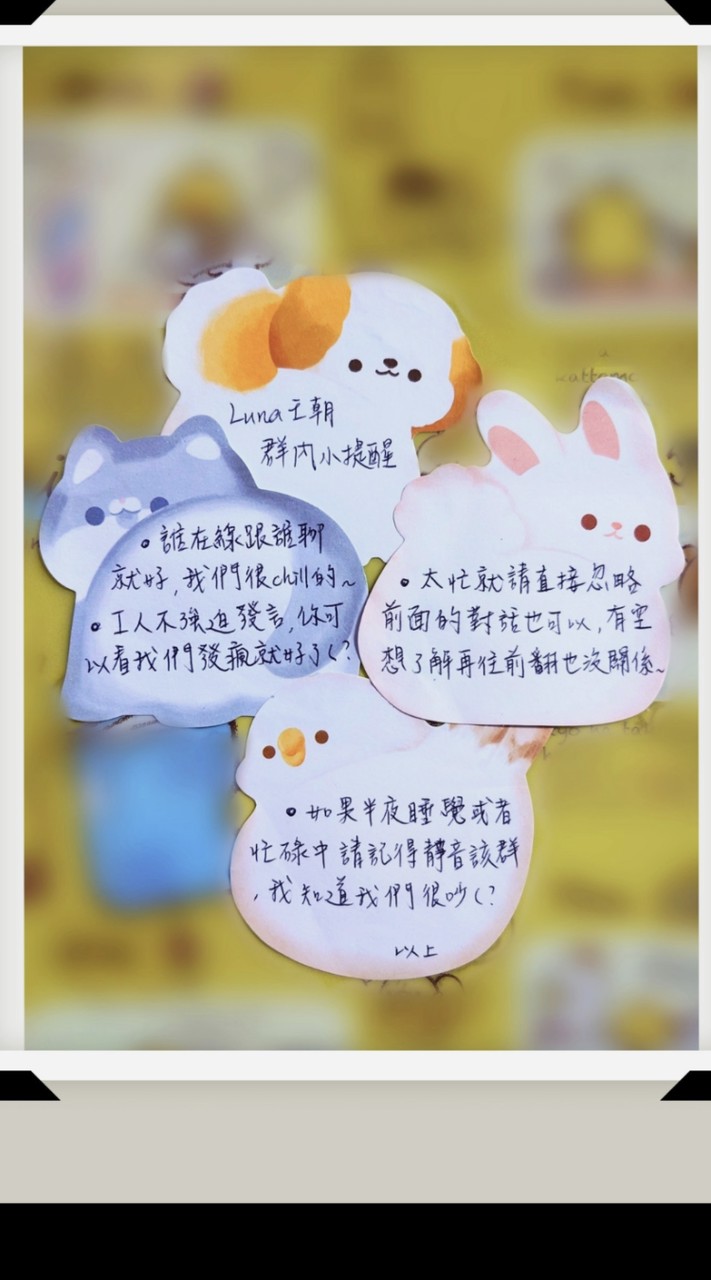 Luna王朝
群內小提醒
• 誰在線跟誰聊
就好,我們很chill的~
• 工人不強迫發言,你可
以看我們發瘋就好了(?
• 太忙就請直接忽略
前面的對話也可以,有空
想了解再往前翻也沒關係~
• 如果半夜睡覺或者
忙碌中請記得靜音該群
,我知道我們很吵(?
以上